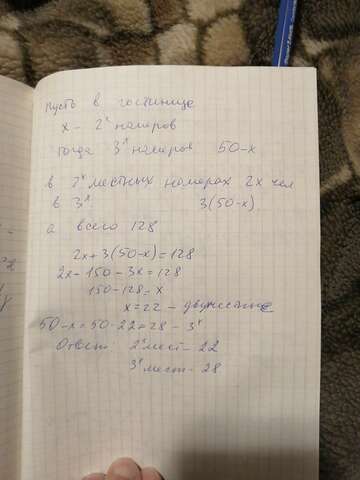 Пусть в гостинице
x – 2х номеров
тогда 3х номеров 50-x
в 2х местных номерах 2x чел
в 3х 3(50-x)
а всего 128
2x+3(50-x)=128
2x+150-3x=128
150-128=x
x=22 – двухместные
50-x=50-22=28 – 3х
Ответ: 2х мест – 22
3х мест – 28